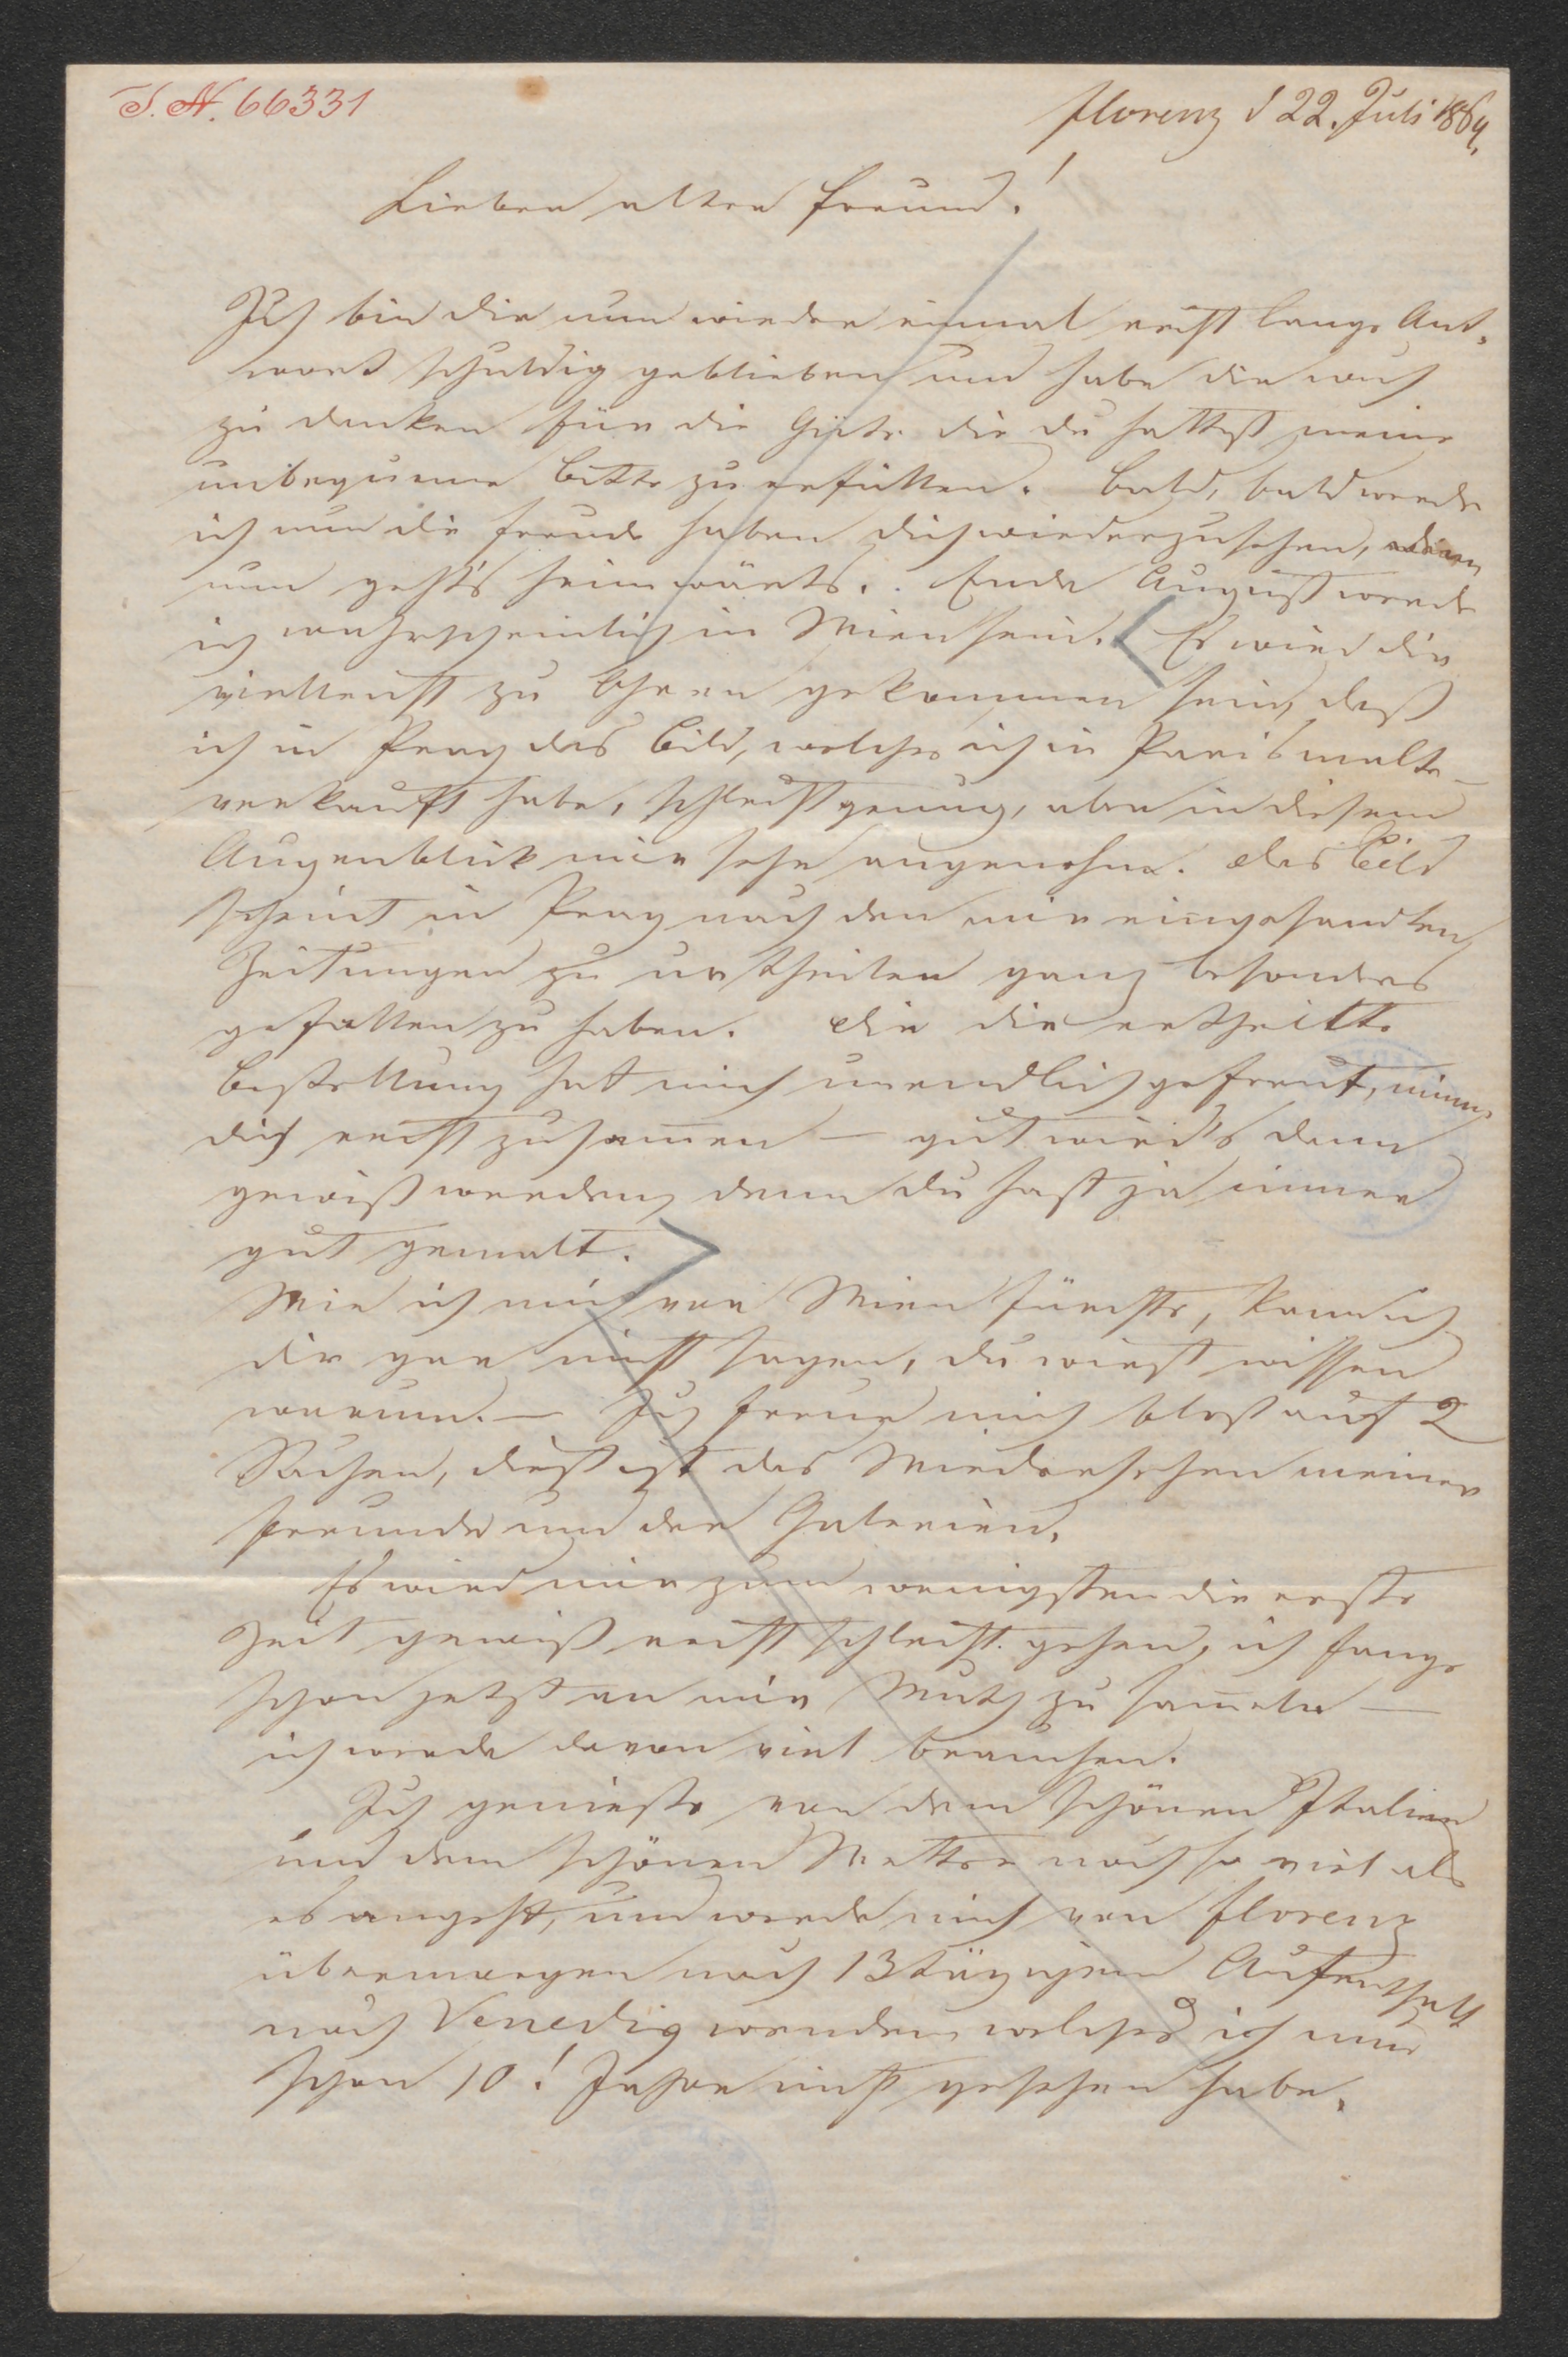 I. N. 66331
Florenz d 22. Juli 1864.
Lieber alter Freund!
Ich bin dir nun wieder einmal recht lange Ant-
wort schuldig geblieben und habe dir noch
zu danken für die Güte die du hattest meine
unbequeme Bitte zu erfüllen. Bald, bald werde
ich nun die Freude haben dich wiederzusehen, denn
nun geht's heimwärts. Ende August werde
ich wahrscheinlich in Wien sein. Es wird dir
vielleicht zu Ohren gekommen sein, daß
ich in Prag das Bild, welches ich in Paris malte –
verkauft habe, schlecht genug, aber in diesem
Augenblick mir sehr angenehm. Das Bild
scheint in Prag nach den mir eingesandten
Zeitungen zu urtheilen ganz besonders
gefallen zu haben. Die dir ertheilte
Bestellung hat mich unendlich gefreut, nimm
dich recht zusam̅en – gut wird's denn
gewiß werden, denn du hast ja immer
gut gemalt.
Wie ich mich vor Wien fürchte, kann ich
dir gar nicht sagen, du wirst wissen
warum. – Ich freue mich blos auf 2
Sachen, dieß ist das Wiedersehen meiner
Freunde und der Galerien.
Es wird mir zum wenigsten die erste
Zeit gewiß recht schlecht gehen, ich fange
schon jetzt an mir Muth zu sam̅eln –
ich werde davon viel brauchen.
Ich genieße von dem schönen Italien
und dem schönen Wetter noch so viel als
es angeht, und werde mich von Florenz
übermorgen nach 13 tägigem Aufenthalt
nach Venedig wenden, welches ich nun
schon 10! Jahre nicht gesehen habe.